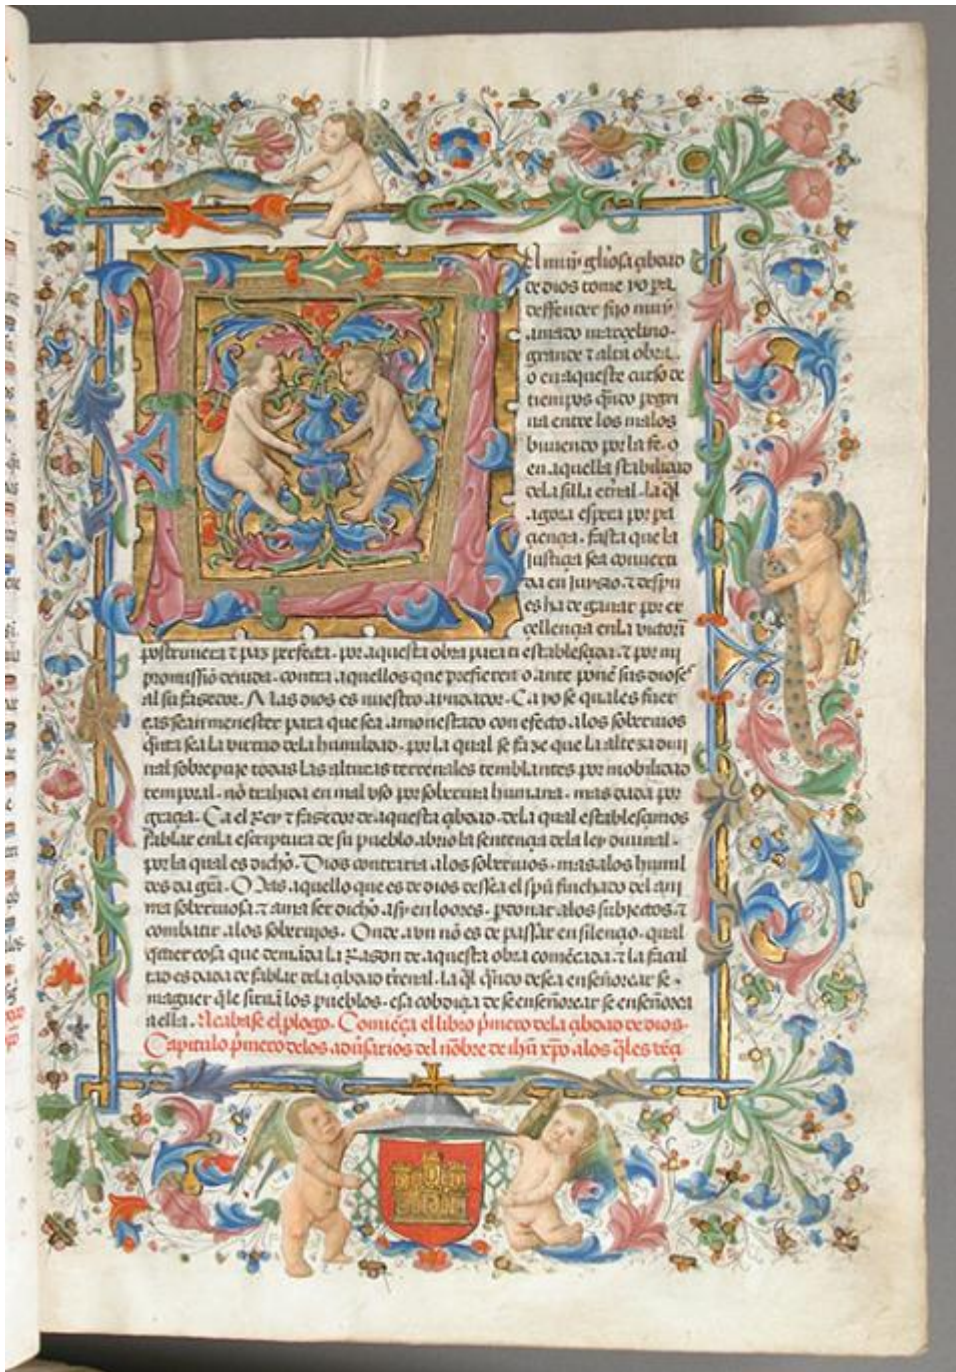 El muy gl'iosa çibdad
de dios tome yo pa
deffender fijo muy
amado marçelino.
grande τ alta obra.
o en aqueste curso de
tienpos q̃ndo pegri
na entre los malos
biuiendo por la fe. o
en aquella stabilidad
dela silla et'nal. la q̃l
agora espera por pa
çiençia. fasta que la
justiçia sea conuerti
da en juysio. τ despu
es ha de ganar por ex
çellençia enla victori
postrimera τ paz perfecta. por aquesta obra para ti establesçida. τ por mi
promissiõ deuida. contra aquellos que prefieren o ante ponẽ sus dioses
al su fasedor. Mas dios es nuestro ayudador. Ca yo se quales fuer
ças sean menester para que sea amonestado con efecto alos soberuios
q̃nta sea la virtud dela humildad. por la qual se faze que la alteza diui
nal sobrepuje todas las alturas terrenales temblantes por mobilidad
temporal. nõ trahida en mal vso por soberuia humana. mas dada por
graçia. Ca el Rey τ fasedor de aquesta çibdad. dela qual establesçimos
fablar enla escriptura de su pueblo. abrio la sentençia dela ley diuinal.
por la qual es dicho. Dios contraria alos soberuios. mas alos humil
des da grã. Mas aquello que es de dios dessea el spũ finchado del ani
ma soberuiosa. τ ama ser dicho asy en loores. perdonar alos subjectos. τ
combatir alos soberuios. Onde avn nõ es de passar en silençio. qual
quier cosa que demãda la Rason de aquesta obra comẽçada. τ la facul
tad es dada de fablar dela çibdad t'renal. la q̃l q̃ndo desea enseñorear se.
maguer q̃le siruã los pueblos. esa cobdiçia de se enseñorear se enseñorea
a ella. Acabase el plogo. Comiẽça el libro p̃mero dela çibdad de dios.
Capitulo p̃mero delos adu'sarios del nõbre de ihũ xp̃o alos q̃les